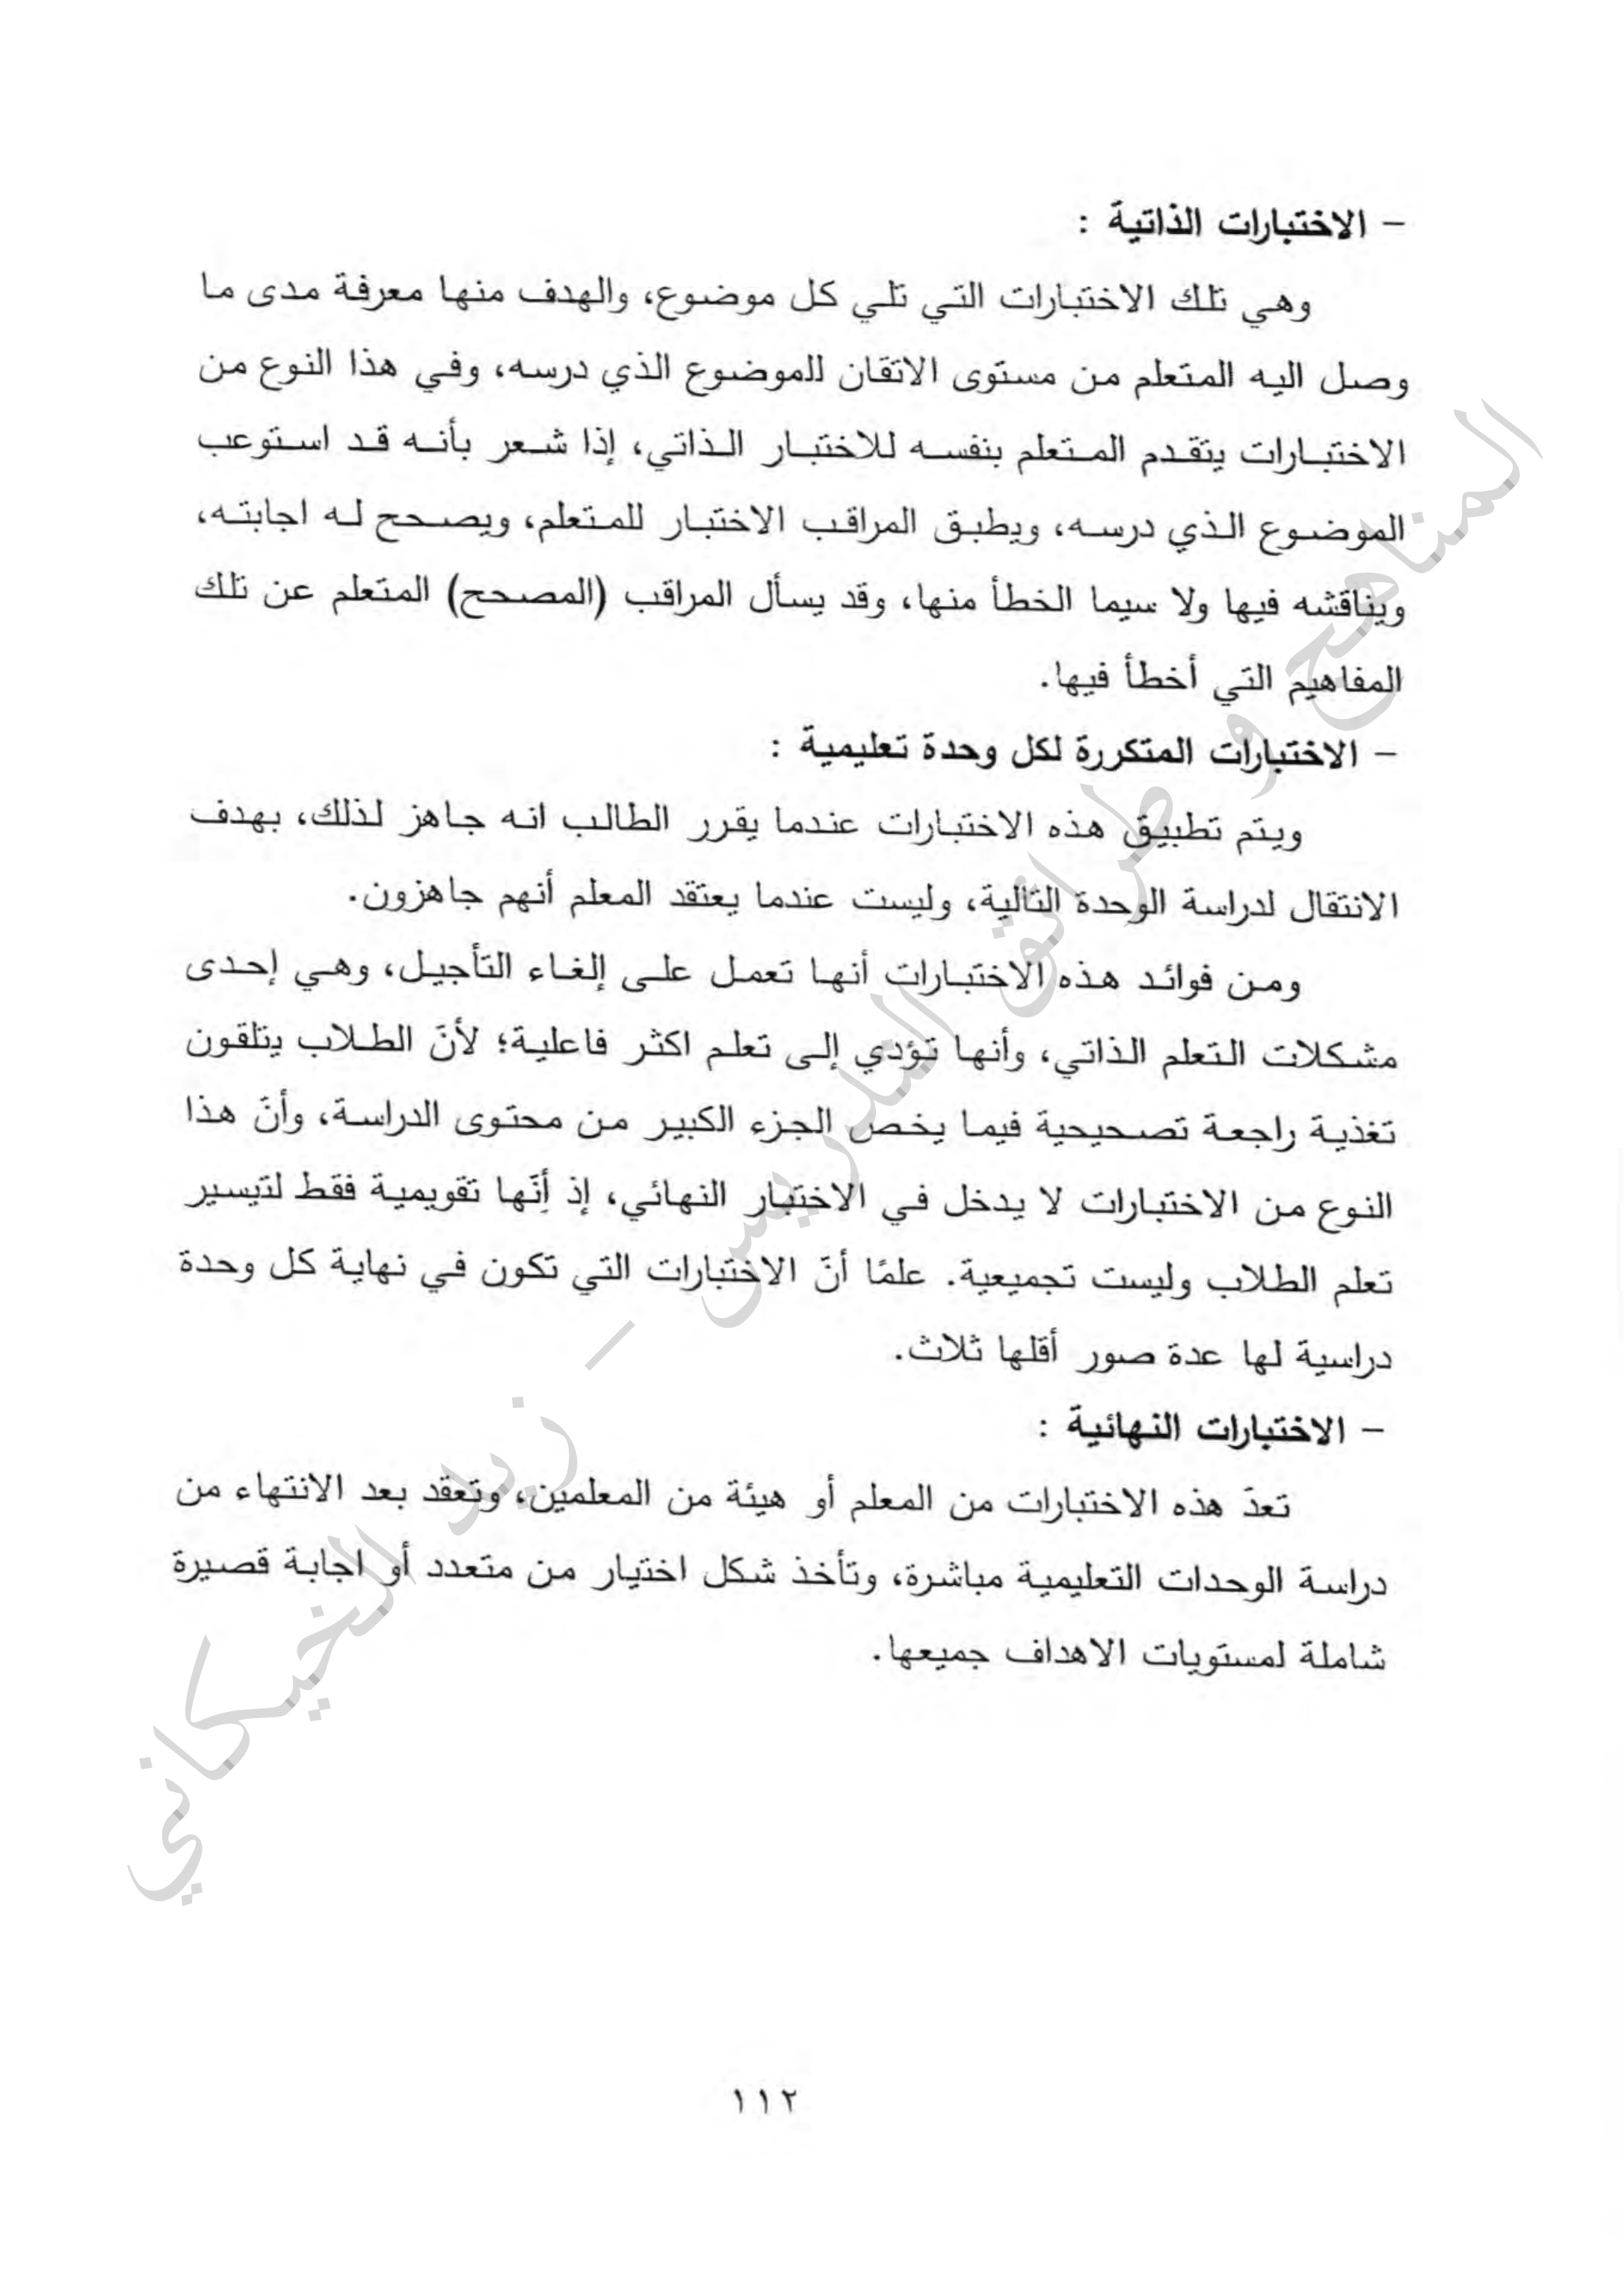 – الاختبارات الذاتية :
وهي تلك الاختبارات التي تلي كل موضوع، والهدف منها معرفة مدى ما
وصل اليه المتعلم من مستوى الاتقان للموضوع الذي درسه، وفي هذا النوع من
الاختبارات يتقدم المتعلم بنفسه للاختبار الذاتي، إذا شعر بأنه قد استوعب
الموضوع الذي درسه، ويطبق المراقب الاختبار للمتعلم، ويصحح له اجابته،
ويناقشه فيها ولا سيما الخطأ منها، وقد يسأل المراقب (المصحح) المتعلم عن تلك
المفاهيم التي أخطأ فيها.
– الاختبارات المتكررة لكل وحدة تعليمية :
ويتم تطبيق هذه الاختبارات عندما يقرر الطالب انه جاهز لذلك، بهدف
الانتقال لدراسة الوحدة التالية، وليست عندما يعتقد المعلم أنهم جاهزون.
ومن فوائد هذه الاختبارات أنها تعمل على إلغاء التأجيل، وهي إحدى
مشكلات التعلم الذاتي، وأنها تؤدي إلى تعلم اكثر فاعلية؛ لأنّ الطلاب يتلقون
تغذية راجعة تصحيحية فيما يخص الجزء الكبير من محتوى الدراسة، وأنّ هذا
النوع من الاختبارات لا يدخل في الاختبار النهائي، إذ إنّها تقويمية فقط لتيسير
تعلم الطلاب وليست تجميعية. علمًا أنّ الاختبارات التي تكون في نهاية كل وحدة
دراسية لها عدة صور أقلها ثلاث.
– الاختبارات النهائية :
تعدّ هذه الاختبارات من المعلم أو هيئة من المعلمين، وتعقد بعد الانتهاء من
دراسة الوحدات التعليمية مباشرة، وتأخذ شكل اختيار من متعدد أو اجابة قصيرة
شاملة لمستويات الاهداف جميعها.
المناهج وطرائق التدريس – زيد الخيكاني
١١٢